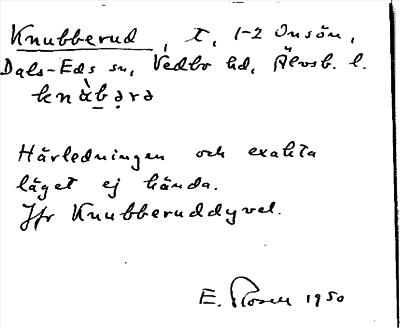 Knubberud, t, 1-2 Onsön,
Dals-Eds sn, Vedbo hd, Älvsb. l.
knàbərə
Härledningen och exakta
läget ej kända.
Jfr Knubberuddyvel.
E. Rosell 1950